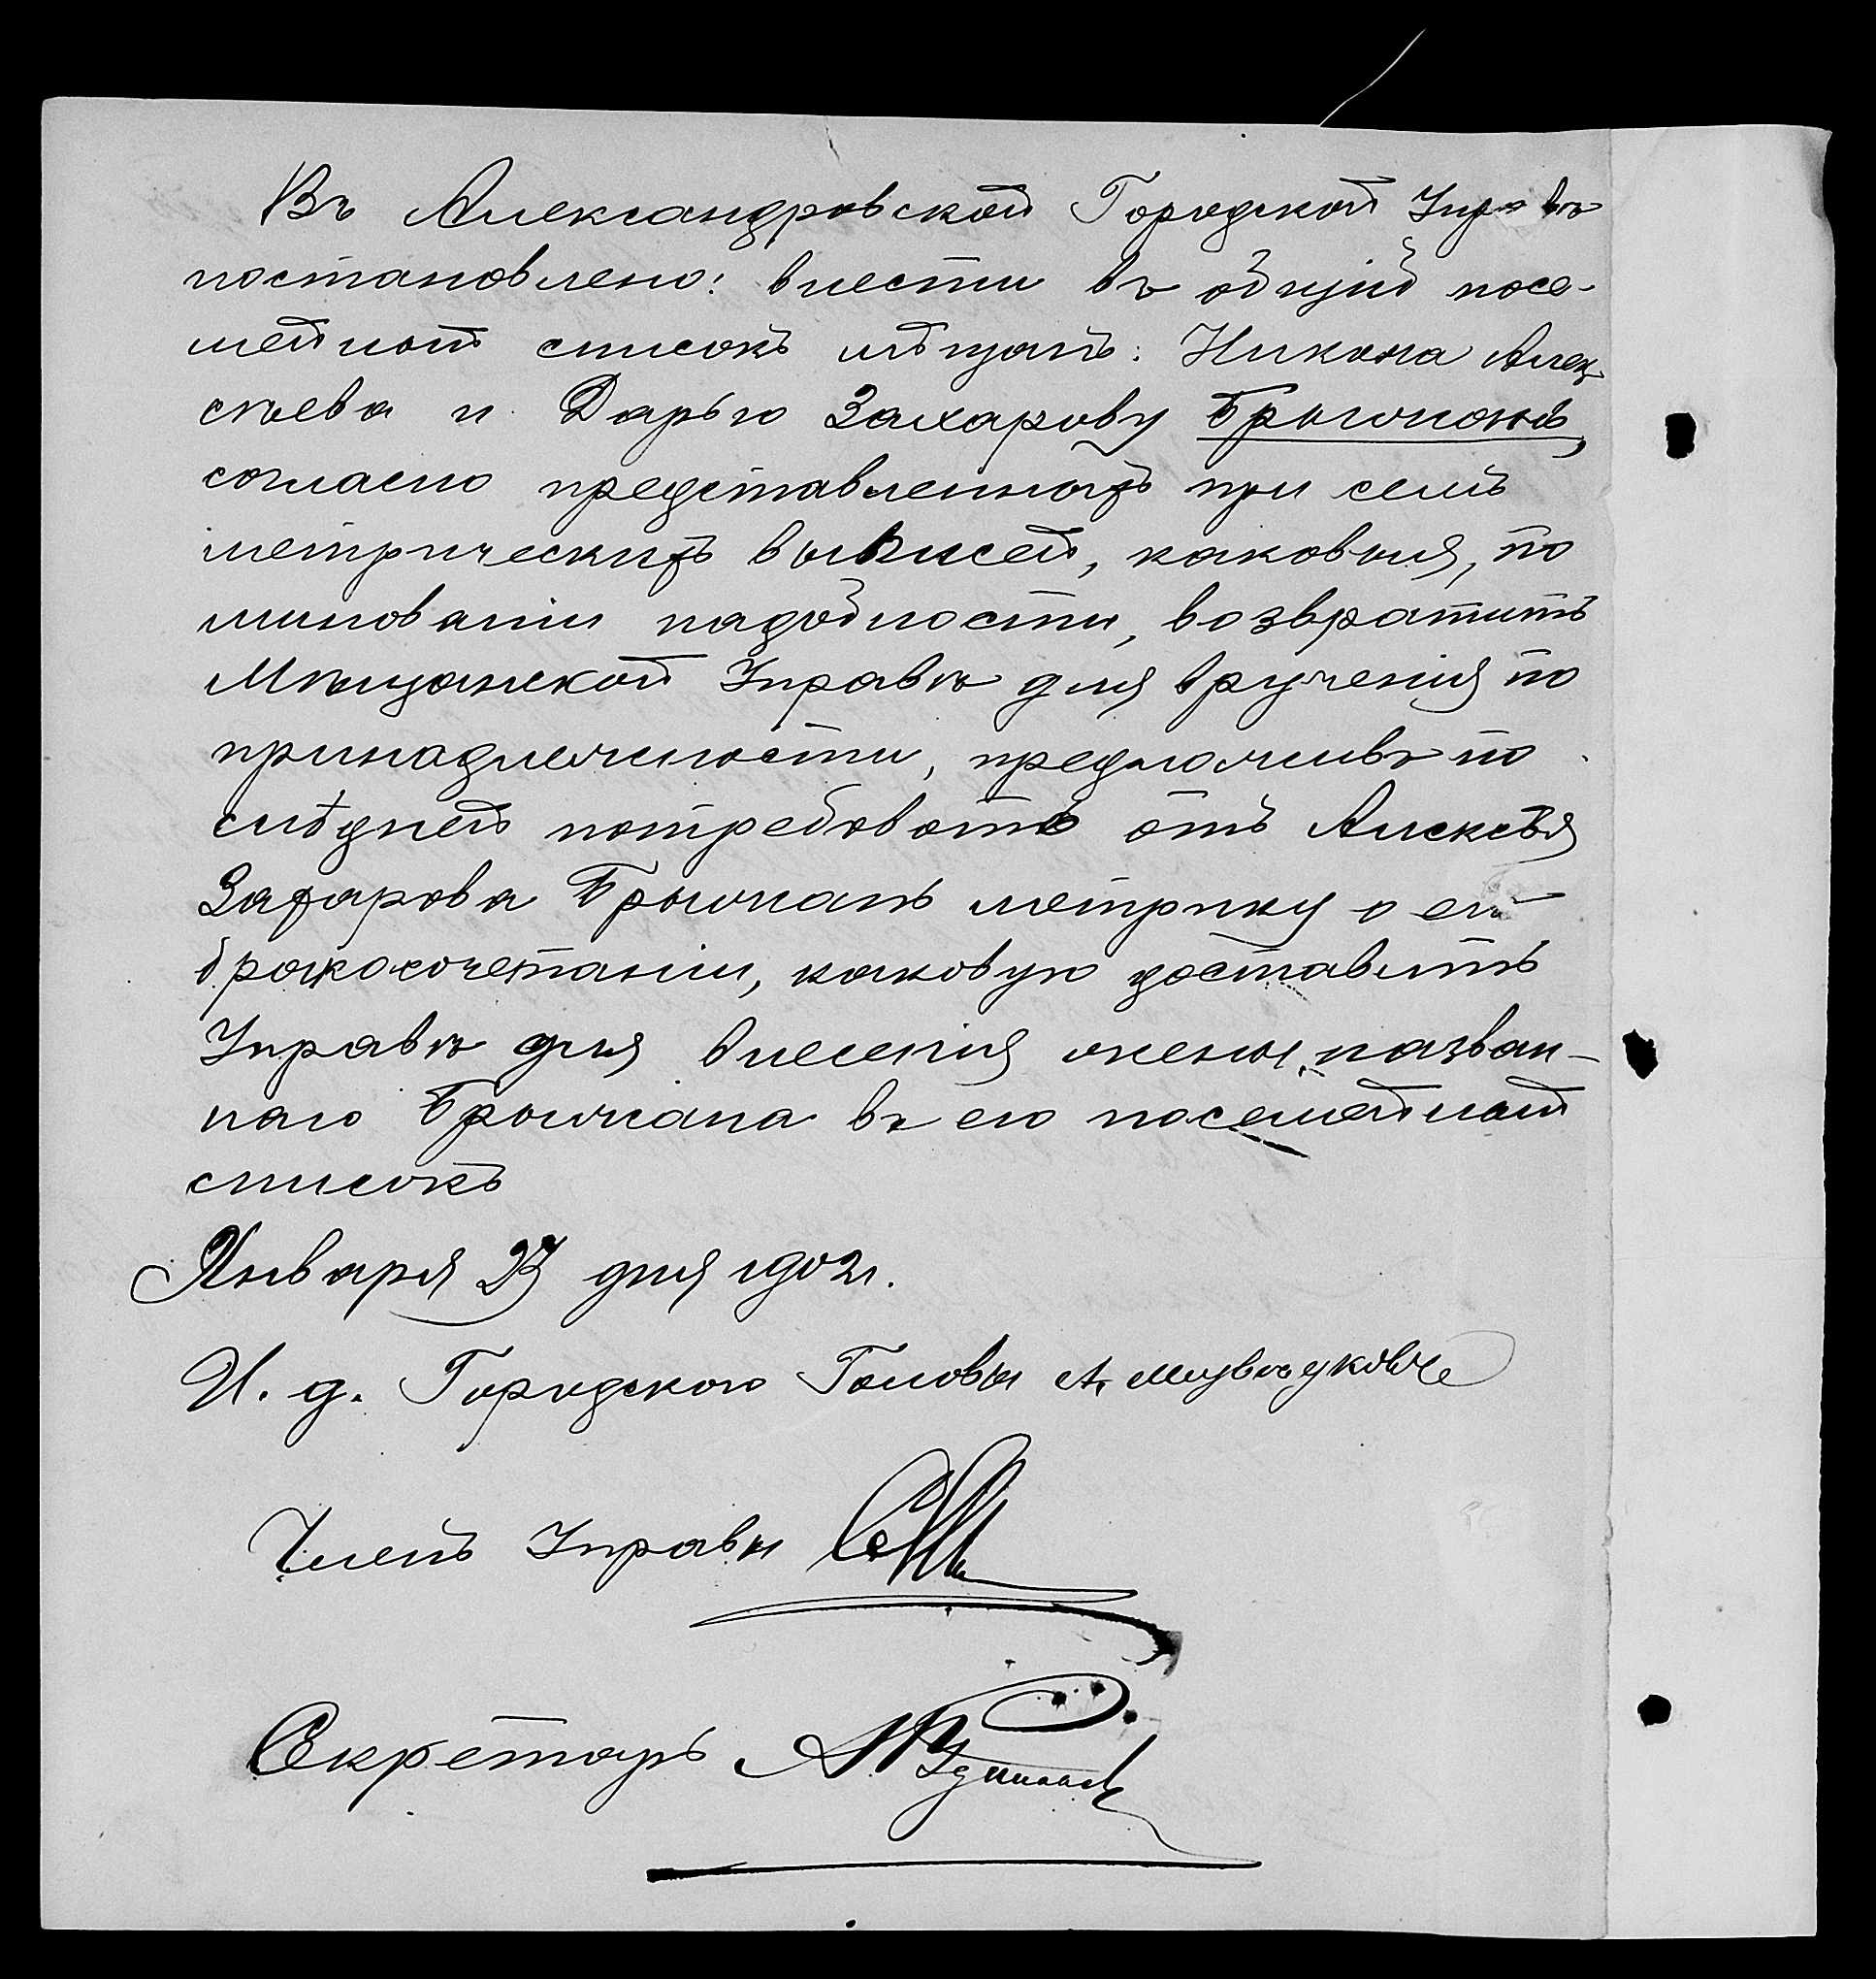 Въ Александровской Городской Управѣ
постановлено: внести въ общій посе-
мейный списокъ мѣщанъ: Никона Алек-
сѣева и Дарью Захарову Брыжчанъ,
согласно представленныхъ при семъ
метрическихъ выписей, каковыя, по
минованіи надобности, возвратить
Мѣщанской Управѣ для врученія по
принадлежности, предложивъ по
слѣдней потребовать отъ Алексѣя
Захарова Брыжчанъ метрику о его
бракосочетаніи, каковую доставить
Управѣ для внесенія жены назван-
наго Брыжчана въ его посемейный
списокъ
Января 23 дня 1902 г.
И. д. Городского Головы А.
Членъ Управы
Секретарь